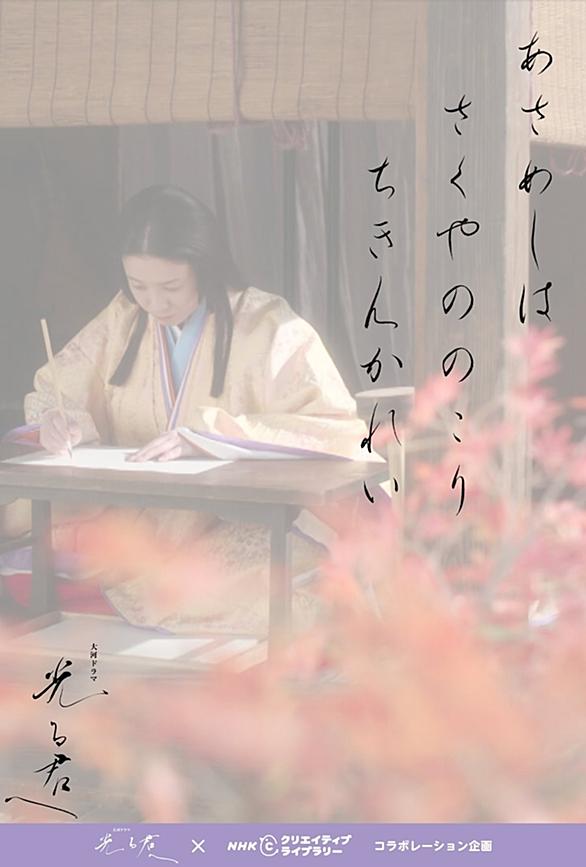 あさめしは
さくやののこり
ちきんかれい
大河ドラマ
光る君へ
光る君へ × NHK クリエイティブライブラリー コラボレーション企画